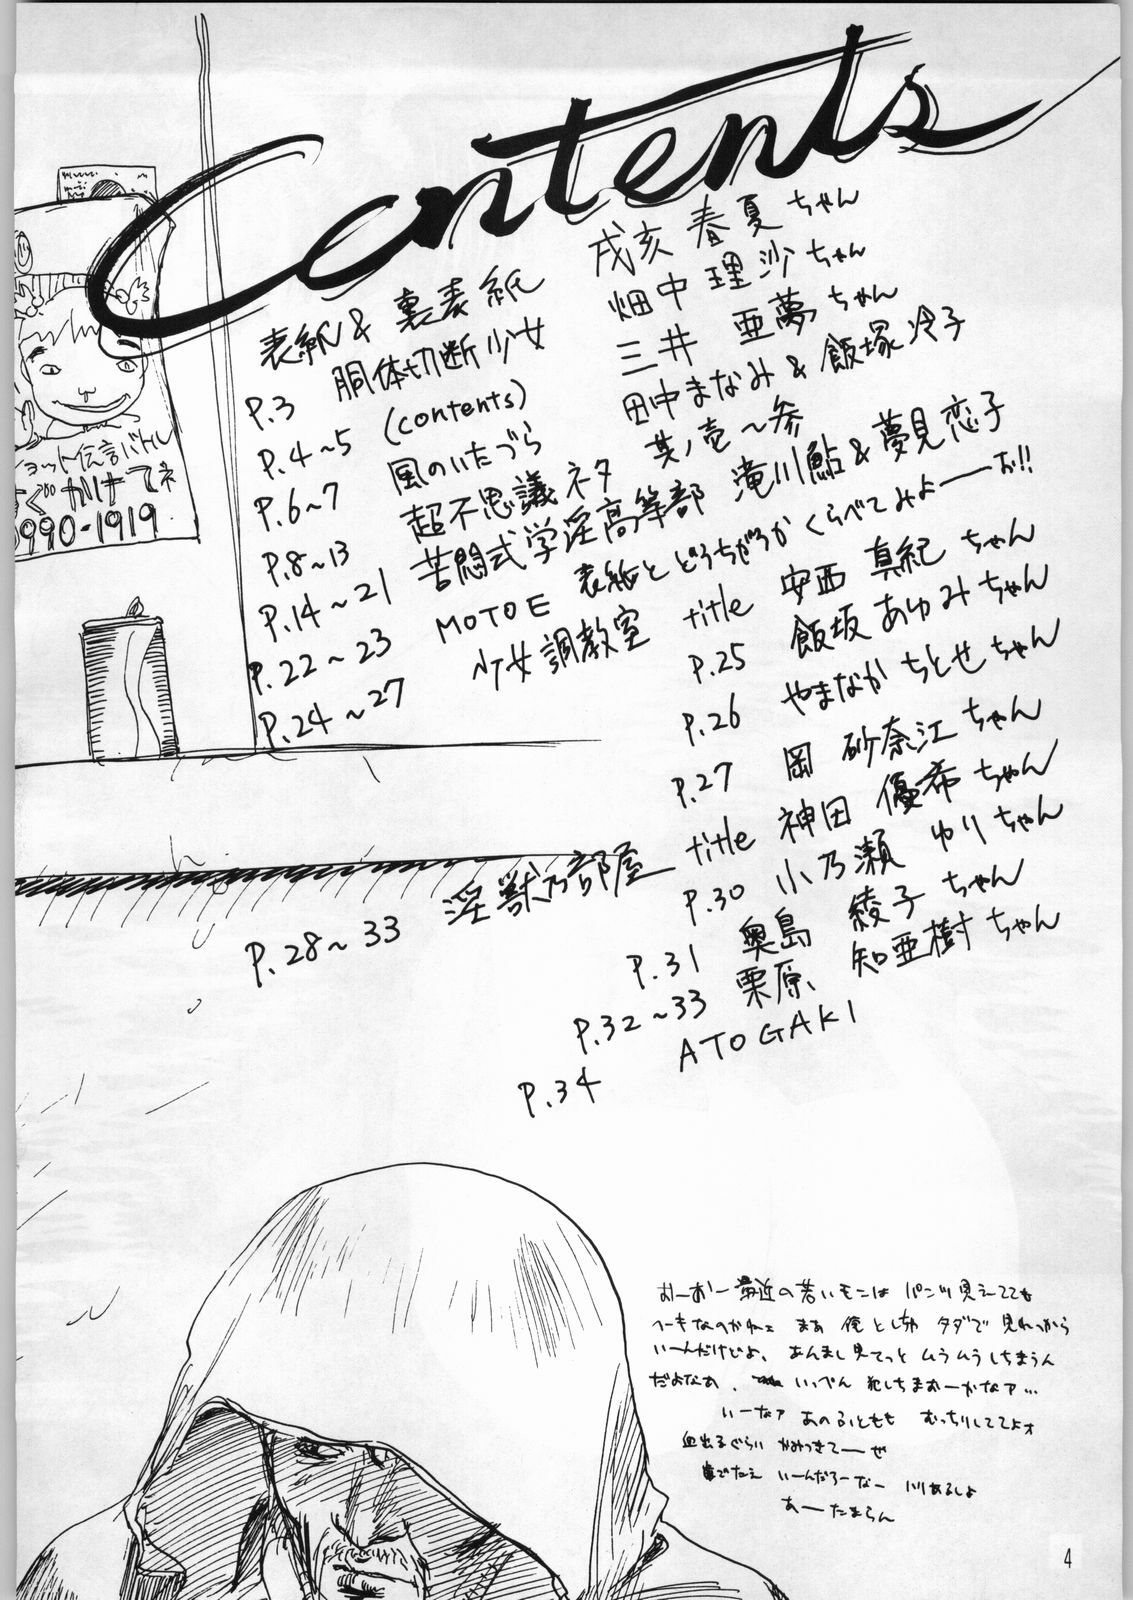 Contents
表紙&裏表紙 戌亥 春夏ちゃん
P.3 胴体切断少女 畑中 理沙ちゃん
P.4~5 (contents) 三井 亜夢ちゃん
P.6~7 風のいたづら 田中まなみ&飯塚冷子
P.8~13 超不思議ネタ 其ノ壱~参
P.14~21 苦悶式学淫高等部 滝川鮎&夢見恋子
P.22~23 MOTOE 表紙とどうちがうかくらべてみよーお!!
P.24~27 少女調教室 title 安西 真紀ちゃん
P.25 飯坂 あゆみちゃん
P.26 やまなか ちとせちゃん
P.27 岡 砂奈江ちゃん
P.28~33 淫獣乃部屋 title 神田 優希ちゃん
P.30 小乃瀬 ゆりちゃん
P.31 奥島 綾子ちゃん
P.32~33 栗原、知亜樹ちゃん
P.34 ATOGAKI
ョット伝言バトル
すぐかけてネ
0990-1919
おーおー最近の若いモンはパンツ見えてても
ヘーキなのかねェ まあ俺としちゃタダで見れっから
いーんだけどよ、あんまし見てっとムラムラしちまうん
だよなぁ、いっぺん犯しちまおーかなァ…
いーなァ あのふともも むっちりしててよォ
血出るぐらい かみつきてーぜ
いーんだろーなー
あーたまらん
4